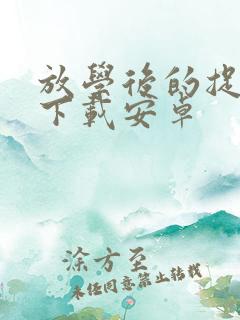 放學後的捉
下載安卓
涂方至
未经同意禁止转载